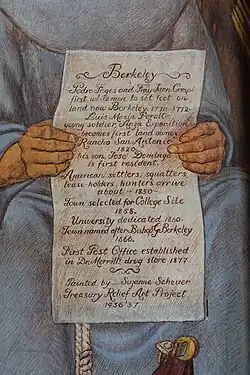 Berkeley
Pedro Fages and Fray Juan Crespi
first white men to set foot on
land now Berkeley, 1770-1772-
Luis Maria Peralta
young soldier Anza Expedition
becomes first land owner
Rancho San Antonio
1820.
his son, Jose Domingo
is first resident.
American settlers, squatters,
lease-holders, hunters arrive
about -1850-
Town selected for College Site
1858.
University dedicated 1860.
Town named after Bishop Geo. Berkeley
1866.
First Post Office established
in Dr. Merrill's drug store 1877.
Painted by Suzanne Scheuer
Treasury Relief Art Project
1936'37.